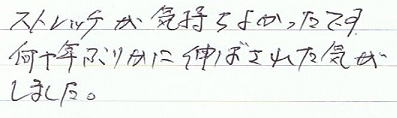 ストレッチが気持ちよかったです
何十年ぶりかに伸ばされた気が
しました。